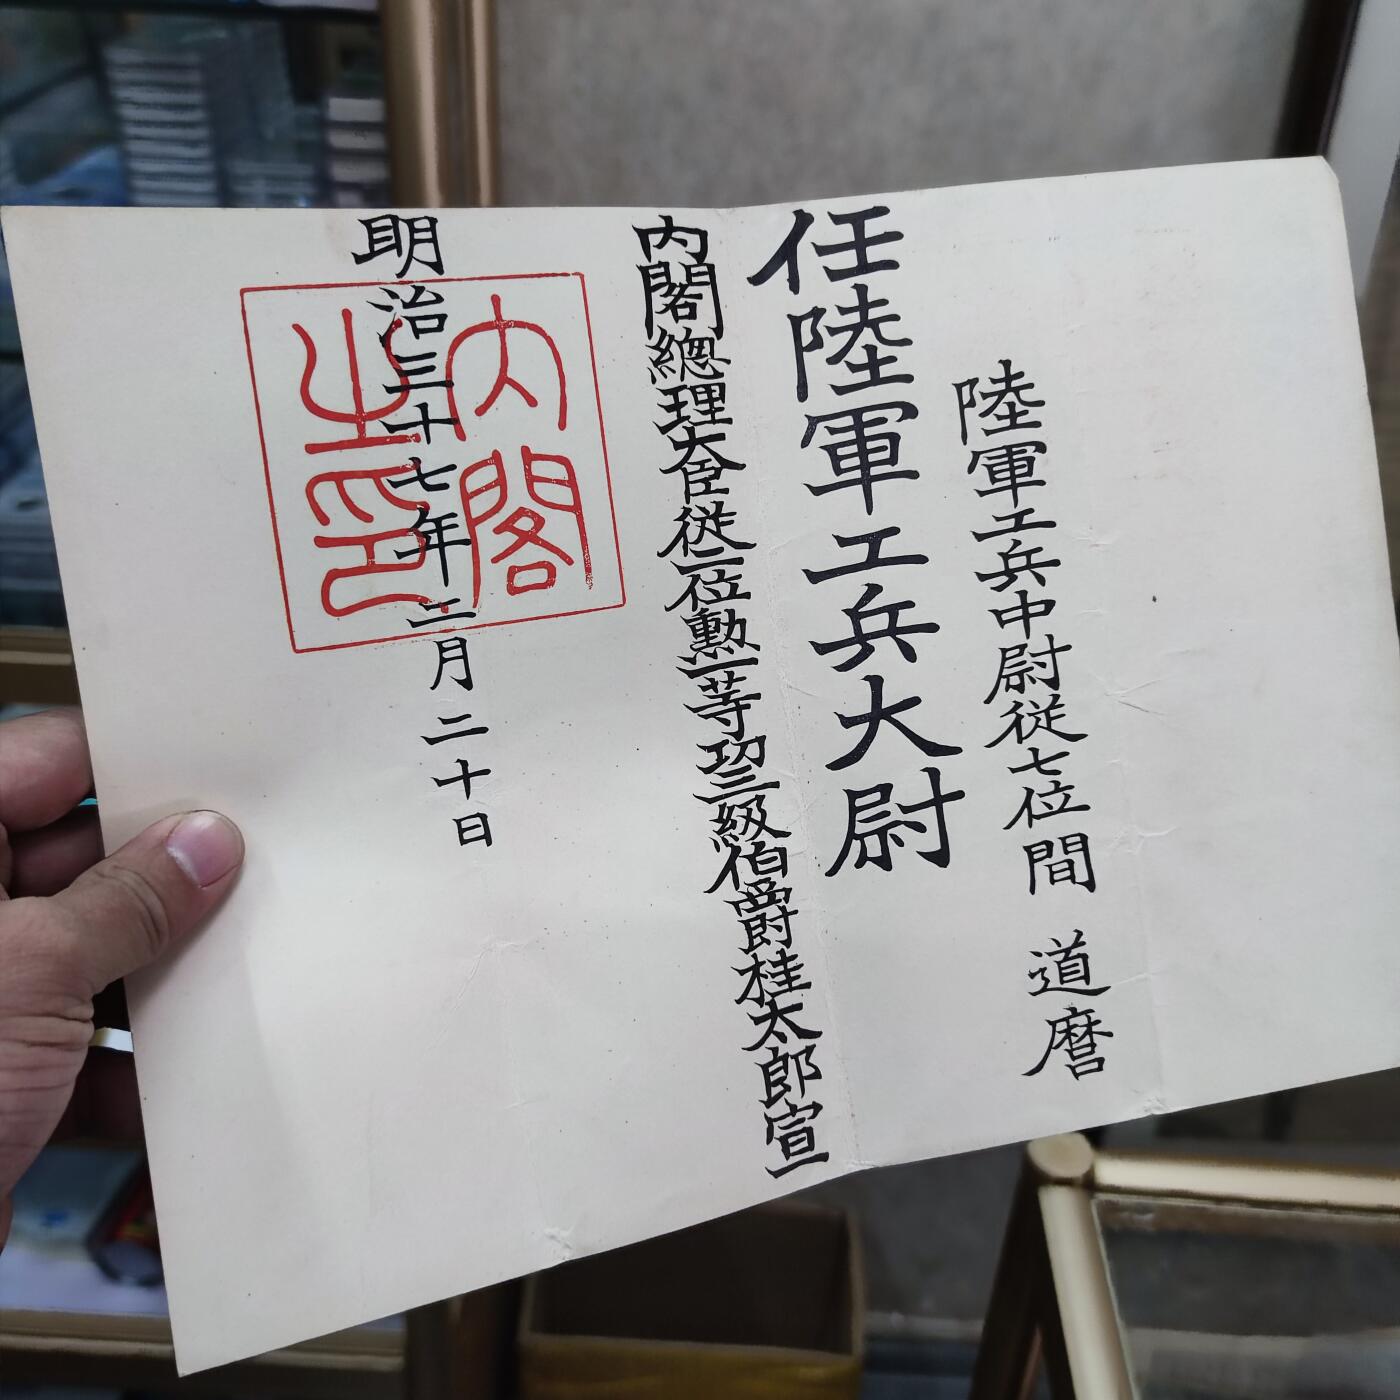 陸軍工兵中尉従七位間 道麿
任陸軍工兵大尉
内閣總理大臣従二位勲一等功三級伯爵桂太郎宣
明治三十七年二月二十日
内閣
之印